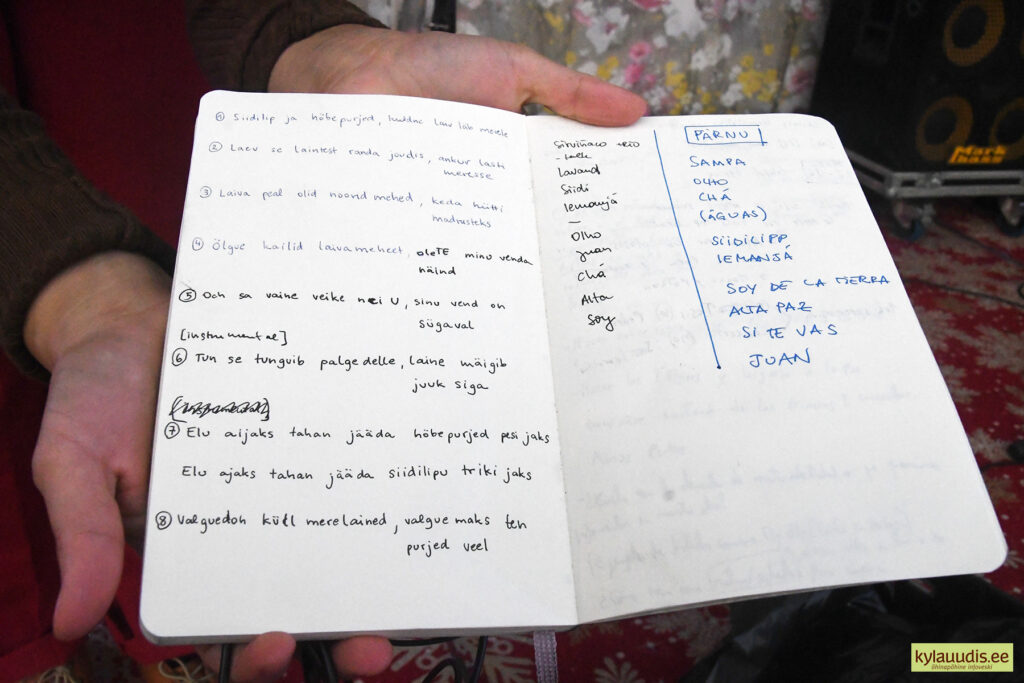 ① Siidilip ja hõbepurjed, kuldne laiv läb merele
② Laev se laintest randa jõudis, ankur lasti
meresse
③ Laiva peal olid noored mehed, keda hüüti
madrusteks
④ Ölgue kailid laivameheet, oleTE minu venda
näind
⑤ Och sa vaine veike nei U, sinu vend on
sügaval
[instrumental]
⑥ Tun se tunguib palgedelle, laine mäigib
juuk siga
⑦ Elu aijaks tahan jääda hõbepurjed pesijaks
Elu ajaks tahan jääda siidilipu trikijaks
⑧ Valguedoh küll merelained, valgue maks ten
purjed veel
Lavand
Siidi
Iemanjá
—
Olho
Juan
Chá
Alta
Soy
PÄRNU
SAMPA
OLHO
CHÁ
(ÁGUAS)
SIIDILIPP
IEMANJÁ
SOY DE LA TIERRA
ALTA PAZ
SI TE VAS
JUAN
Mark
bass
kylauudis.ee
ühinapõhine infoveski